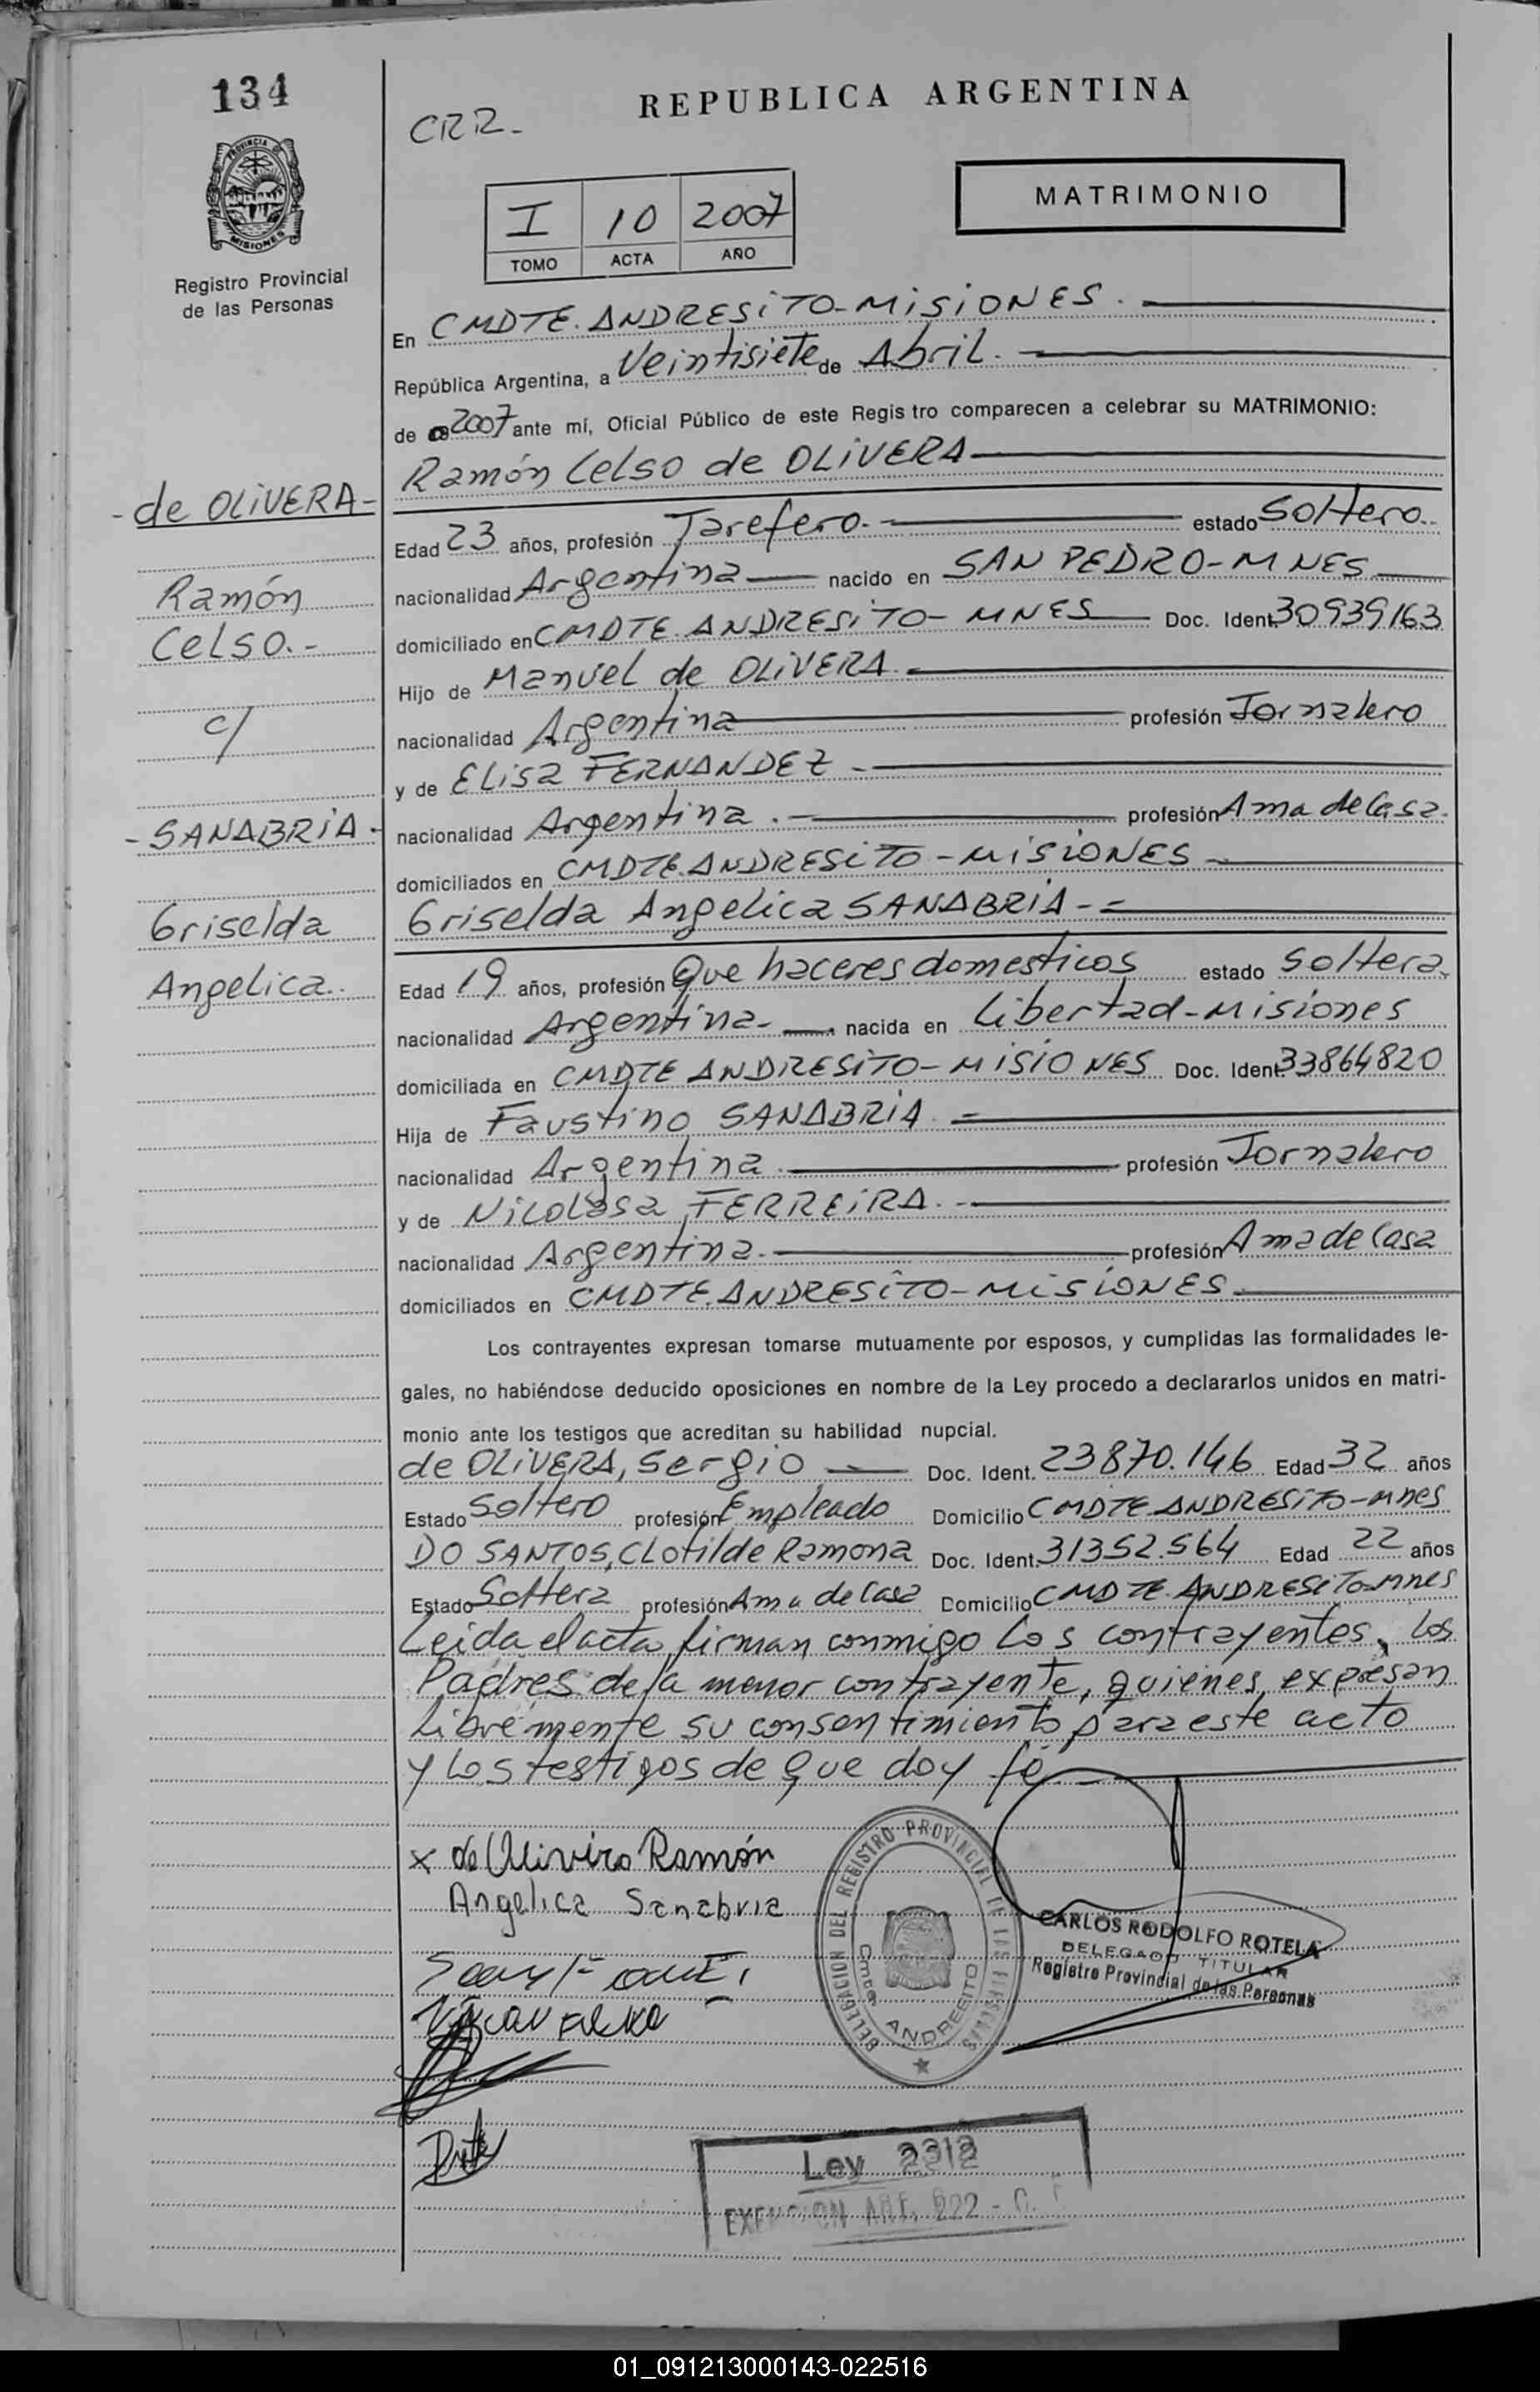 134
PROVINCIA DE
MISIONES
Registro Provincial
de las Personas
CRR-
REPUBLICA ARGENTINA
I 10 2007
TOMO ACTA AÑO
MATRIMONIO
En CMDTE. ANDRESiTO-MiSiONES.
República Argentina, a Veintisiete de Abril.
de 2007 ante mí, Oficial Público de este Regis tro comparecen a celebrar su MATRIMONIO:
Ramón Celso de OLiVERA
-de OLiVERA-
Edad 23 años, profesión Tarefero.- estado Soltero.-
Ramón
nacionalidad Argentina nacido en SAN PEDRO-MNES
Celso.-
domiciliado en CMDTE. ANDRESiTO-MNES Doc. Ident. 30939163
Hijo de Manuel de OLiVERA.
c/
nacionalidad Argentina profesión Jornalero
y de Elisa FERNANDEZ-
-SANABRiA-
nacionalidad Argentina.- profesión Ama de Casa.
domiciliados en CMDTE. ANDRESiTO-MiSiONES-
Griselda
Griselda Angelica SANABRiA-=
Angelica.
Edad 19 años, profesión Que haceres domesticos estado Soltera
nacionalidad Argentina- nacida en Libertad-Misiones
domiciliada en CMDTE ANDRESiTO-MISIONES Doc. Ident. 33864820
Hija de Faustino SANABRiA. =
nacionalidad Argentina. profesión Jornalero
y de Nicolasa FERREiRA.-
nacionalidad Argentina. profesión Ama de Casa
domiciliados en CMDTE. ANDRESiTO-MiSiONES.
Los contrayentes expresan tomarse mutuamente por esposos, y cumplidas las formalidades le-
gales, no habiéndose deducido oposiciones en nombre de la Ley procedo a declararlos unidos en matri-
monio ante los testigos que acreditan su habilidad nupcial.
de OLiVERA, Sergio Doc. Ident. 23870.146 Edad 32 años
Estado Soltero profesión Empleado Domicilio CMDTE. ANDRESiTO-Mnes
DO SANTOS, Clotilde Ramona Doc. Ident. 31352.564 Edad 22 años
Estado Soltera profesión Ama de Casa Domicilio CMDTE. ANDRESiTO-Mnes
Leida el acta, firman conmigo los contrayentes, los
Padres de la menor contrayente, quienes expresan
libremente su consentimiento para este acto
y los testigos de que doy fé.
x de Oliviro Ramón
Angelica Sanabria
DELEGACION DEL REGISTRO PROVINCIAL DE LAS PERSONAS
Cmte. ANDRESITO
CARLOS RODOLFO ROTELA
DELEGADO TITULAR
Registro Provincial de las Personas
Ley 2312
EXENCION ART. 222 - C.
01_091213000143-022516